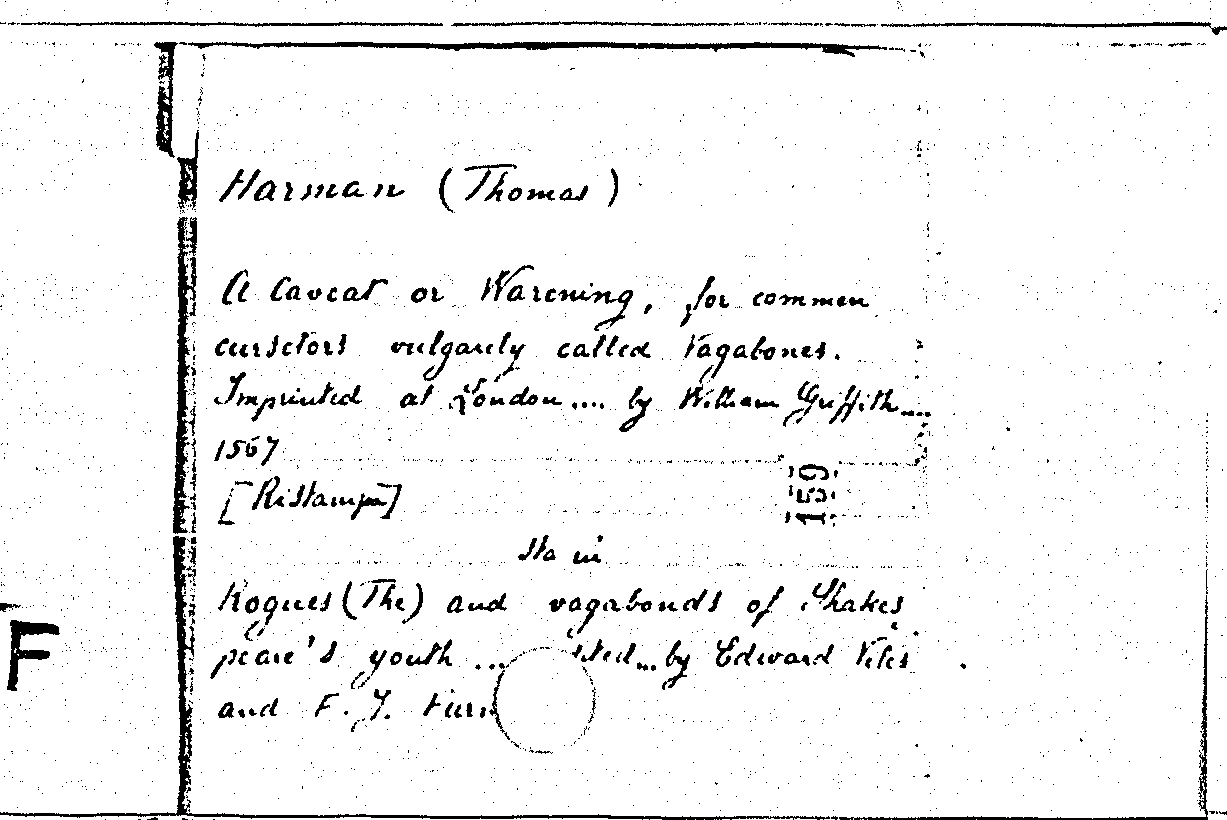 Harman (Thomas)
A Caveat or Warening, for commen
cursetors vulgarely called Vagabones.
Imprinted at London .... by William Griffith....
1567
[Ristampa]
159
Sta in
Rogues (The) and vagabonds of Shakes
peare's youth ... ited... by Edward Viles
and F. J. Furn
F